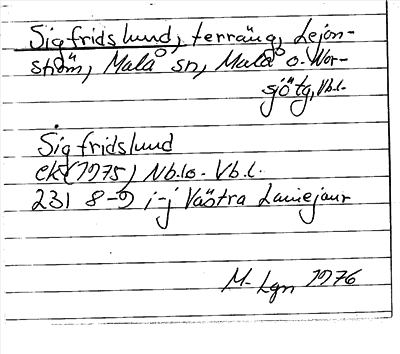 Sigfridslund, terräng, Lejon-
ström, Malå sn, Malå o. Nor-
sjö tg, Vb.l.
Sigfridslund
ek (1975) Nb.lo. Vb.l.
231 8-9 i-j Västra Lainejaur
M. Lgn 1976